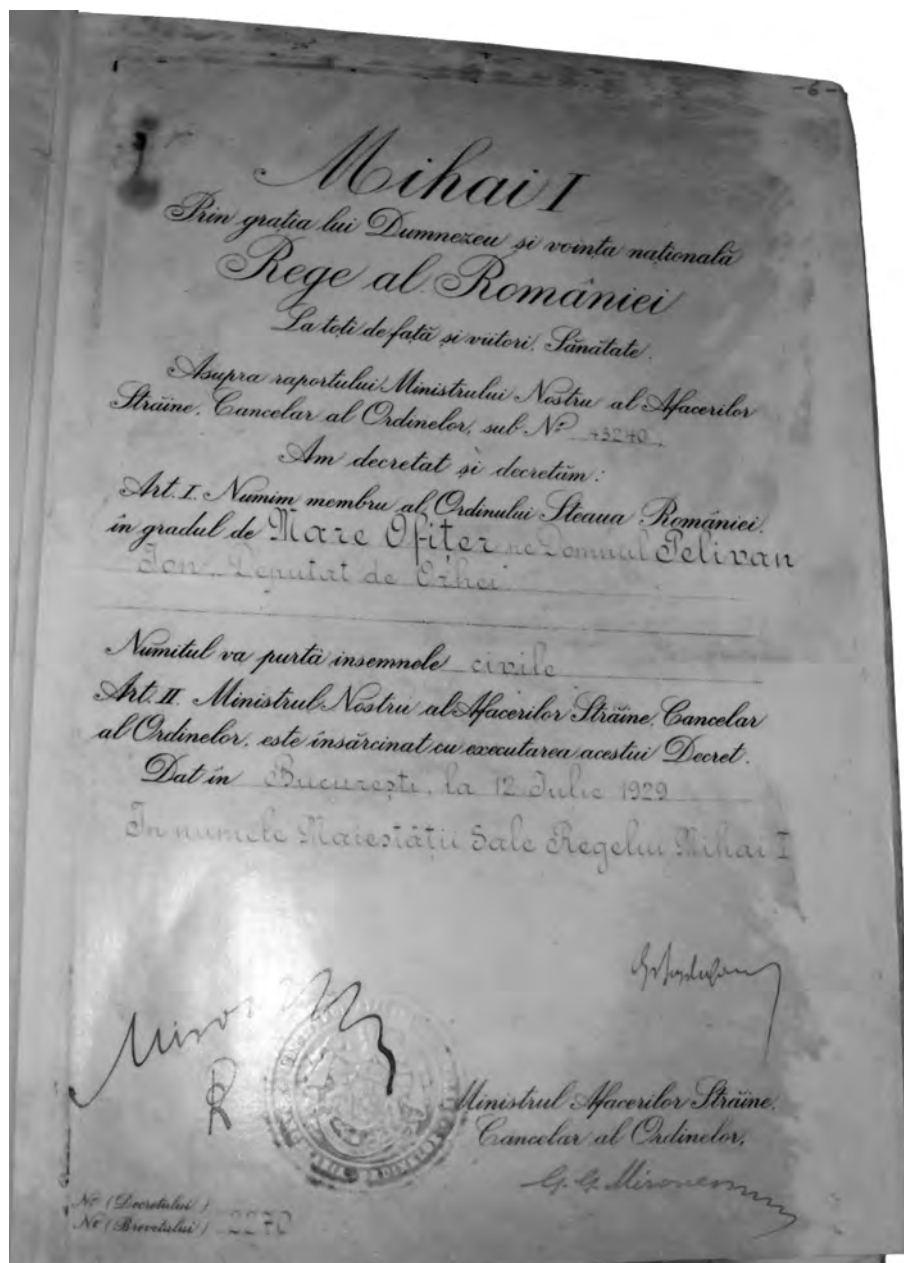 -6-
Mihai I
Prin grația lui Dumnezeu și voința națională
Rege al României
La toți de față și viitori, Sănătate.
Asupra raportului Ministrului Nostru al Afacerilor
Străine, Cancelar al Ordinelor, sub Nº 43240,
Am decretat și decretăm:
Art. I. Numim membru al Ordinului Steaua României.
în gradul de Mare Ofițer pe Domnul Pelivan
Ion, Deputat de Orhei
Numitul va purtà insemnele civile
Art. II. Ministrul Nostru al Afacerilor Străine, Cancelar
al Ordinelor, este însărcinat cu executarea acestui Decret.
Dat în București, la 12 Iulie 1929
In numele Maiestății Sale Regelui Mihai I
Miron
Ministrul Afacerilor Străine,
Cancelar al Ordinelor,
G. G. Mironescu
Nº (Decretului)
Nº (Brevetului) 2270